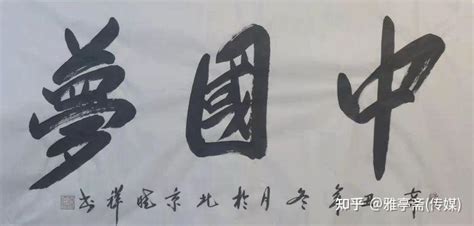 中國夢
辛丑年冬月於北京晓祥书
知乎 @雅亭斋(传媒)